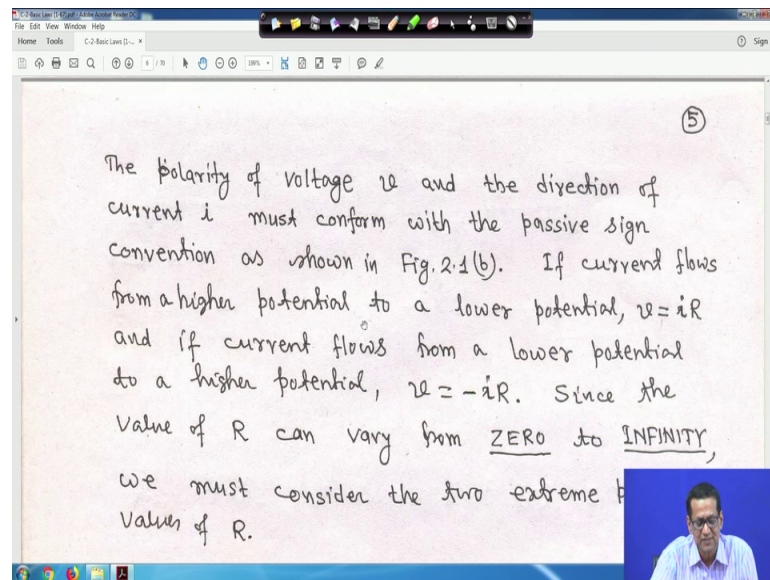 C-2-Basic Laws [1-67].pdf - Adobe Acrobat Reader DC
File Edit View Window Help
Home Tools C-2-Basic Laws [1-... × Sign
6 / 70 199%
5
The polarity of voltage v and the direction of
current i must conform with the passive sign
convention as shown in Fig. 2.1(b). If current flows
from a higher potential to a lower potential, v = iR
and if current flows from a lower potential
to a higher potential, v = -iR. Since the
value of R can vary from ZERO to INFINITY,
we must consider the two extreme
values of R.